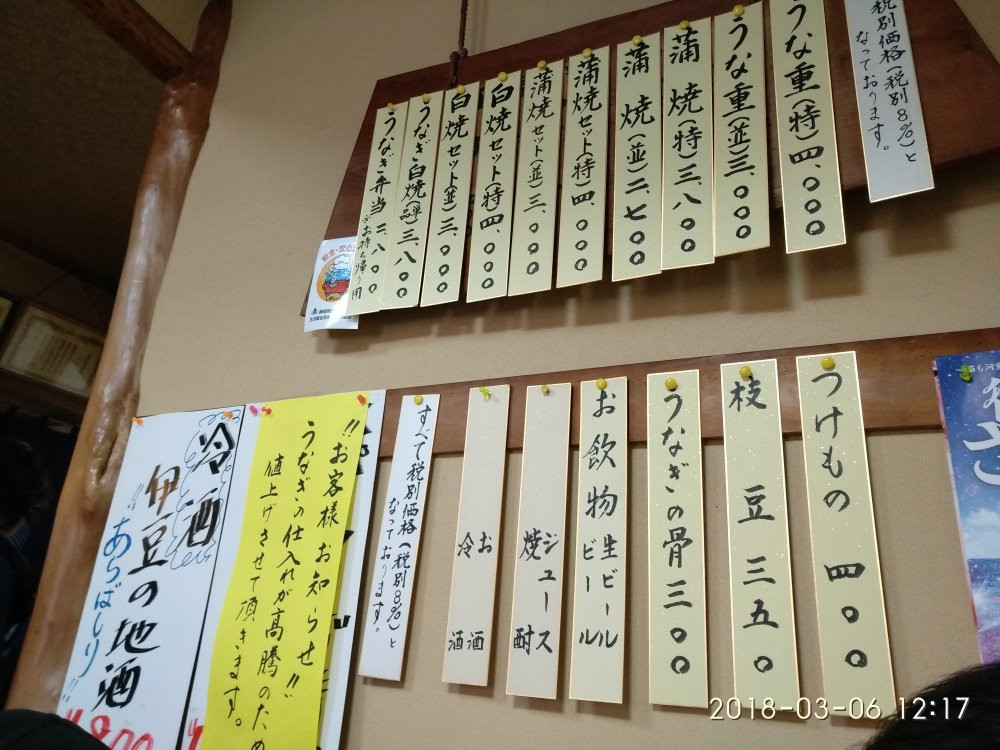 税別価格(税別8%)と
なっております。
うな重(特)四、〇〇〇
うな重(並)三、〇〇〇
蒲焼(特)三、八〇〇
蒲焼(並)二、七〇〇
蒲焼セット(特)四、〇〇〇
蒲焼セット(並)三、〇〇〇
白焼セット(特)四、〇〇〇
白焼セット(並)三、〇〇〇
うなぎ白焼(単品)三、八〇〇
うなぎ弁当 二、八〇〇
※お持ち帰り用
つけもの 四〇〇
枝豆 三五〇
うなぎの骨 三〇〇
お飲物 生ビール
ビール
ジュース
焼酎
お酒
冷酒
すべて税別価格(税別8%)と
なっております。
!!お客様お知らせ!!
うなぎの仕入れが高騰のため
値上げさせて頂きます。
冷酒
伊豆の地酒
!!あらばしり!!
2018-03-06 12:17